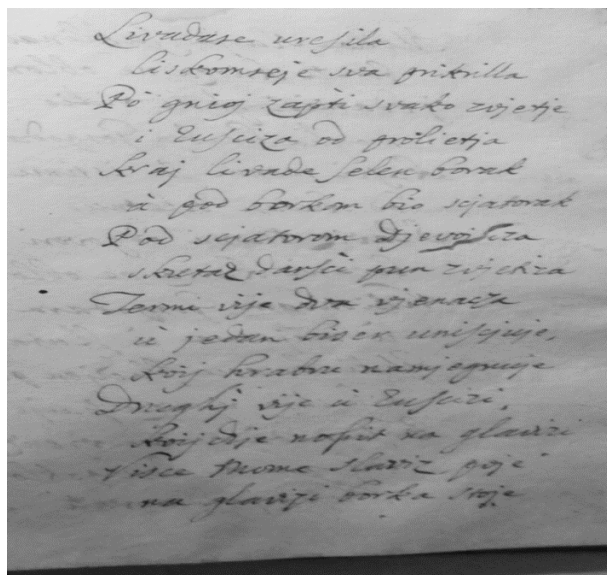 Livadase uresila
liskomseje sva pritrilla
Pò gnioj zapti svako zvjetje
i rusciza od prolietja
kraj livade selen borak
à pod borkom bio scjatorak
Pod scjatorom Djevojciza
skutaz darsci pun zvjetiza
Termi vije dva vjenacza
ù jedan biser uniscjuje,
koij hrabru namjegnuje
Drughj vije ù rusizi,
koij dje nossit na glavizi
Visce thome slaviz poje
na glavizi borka stoje